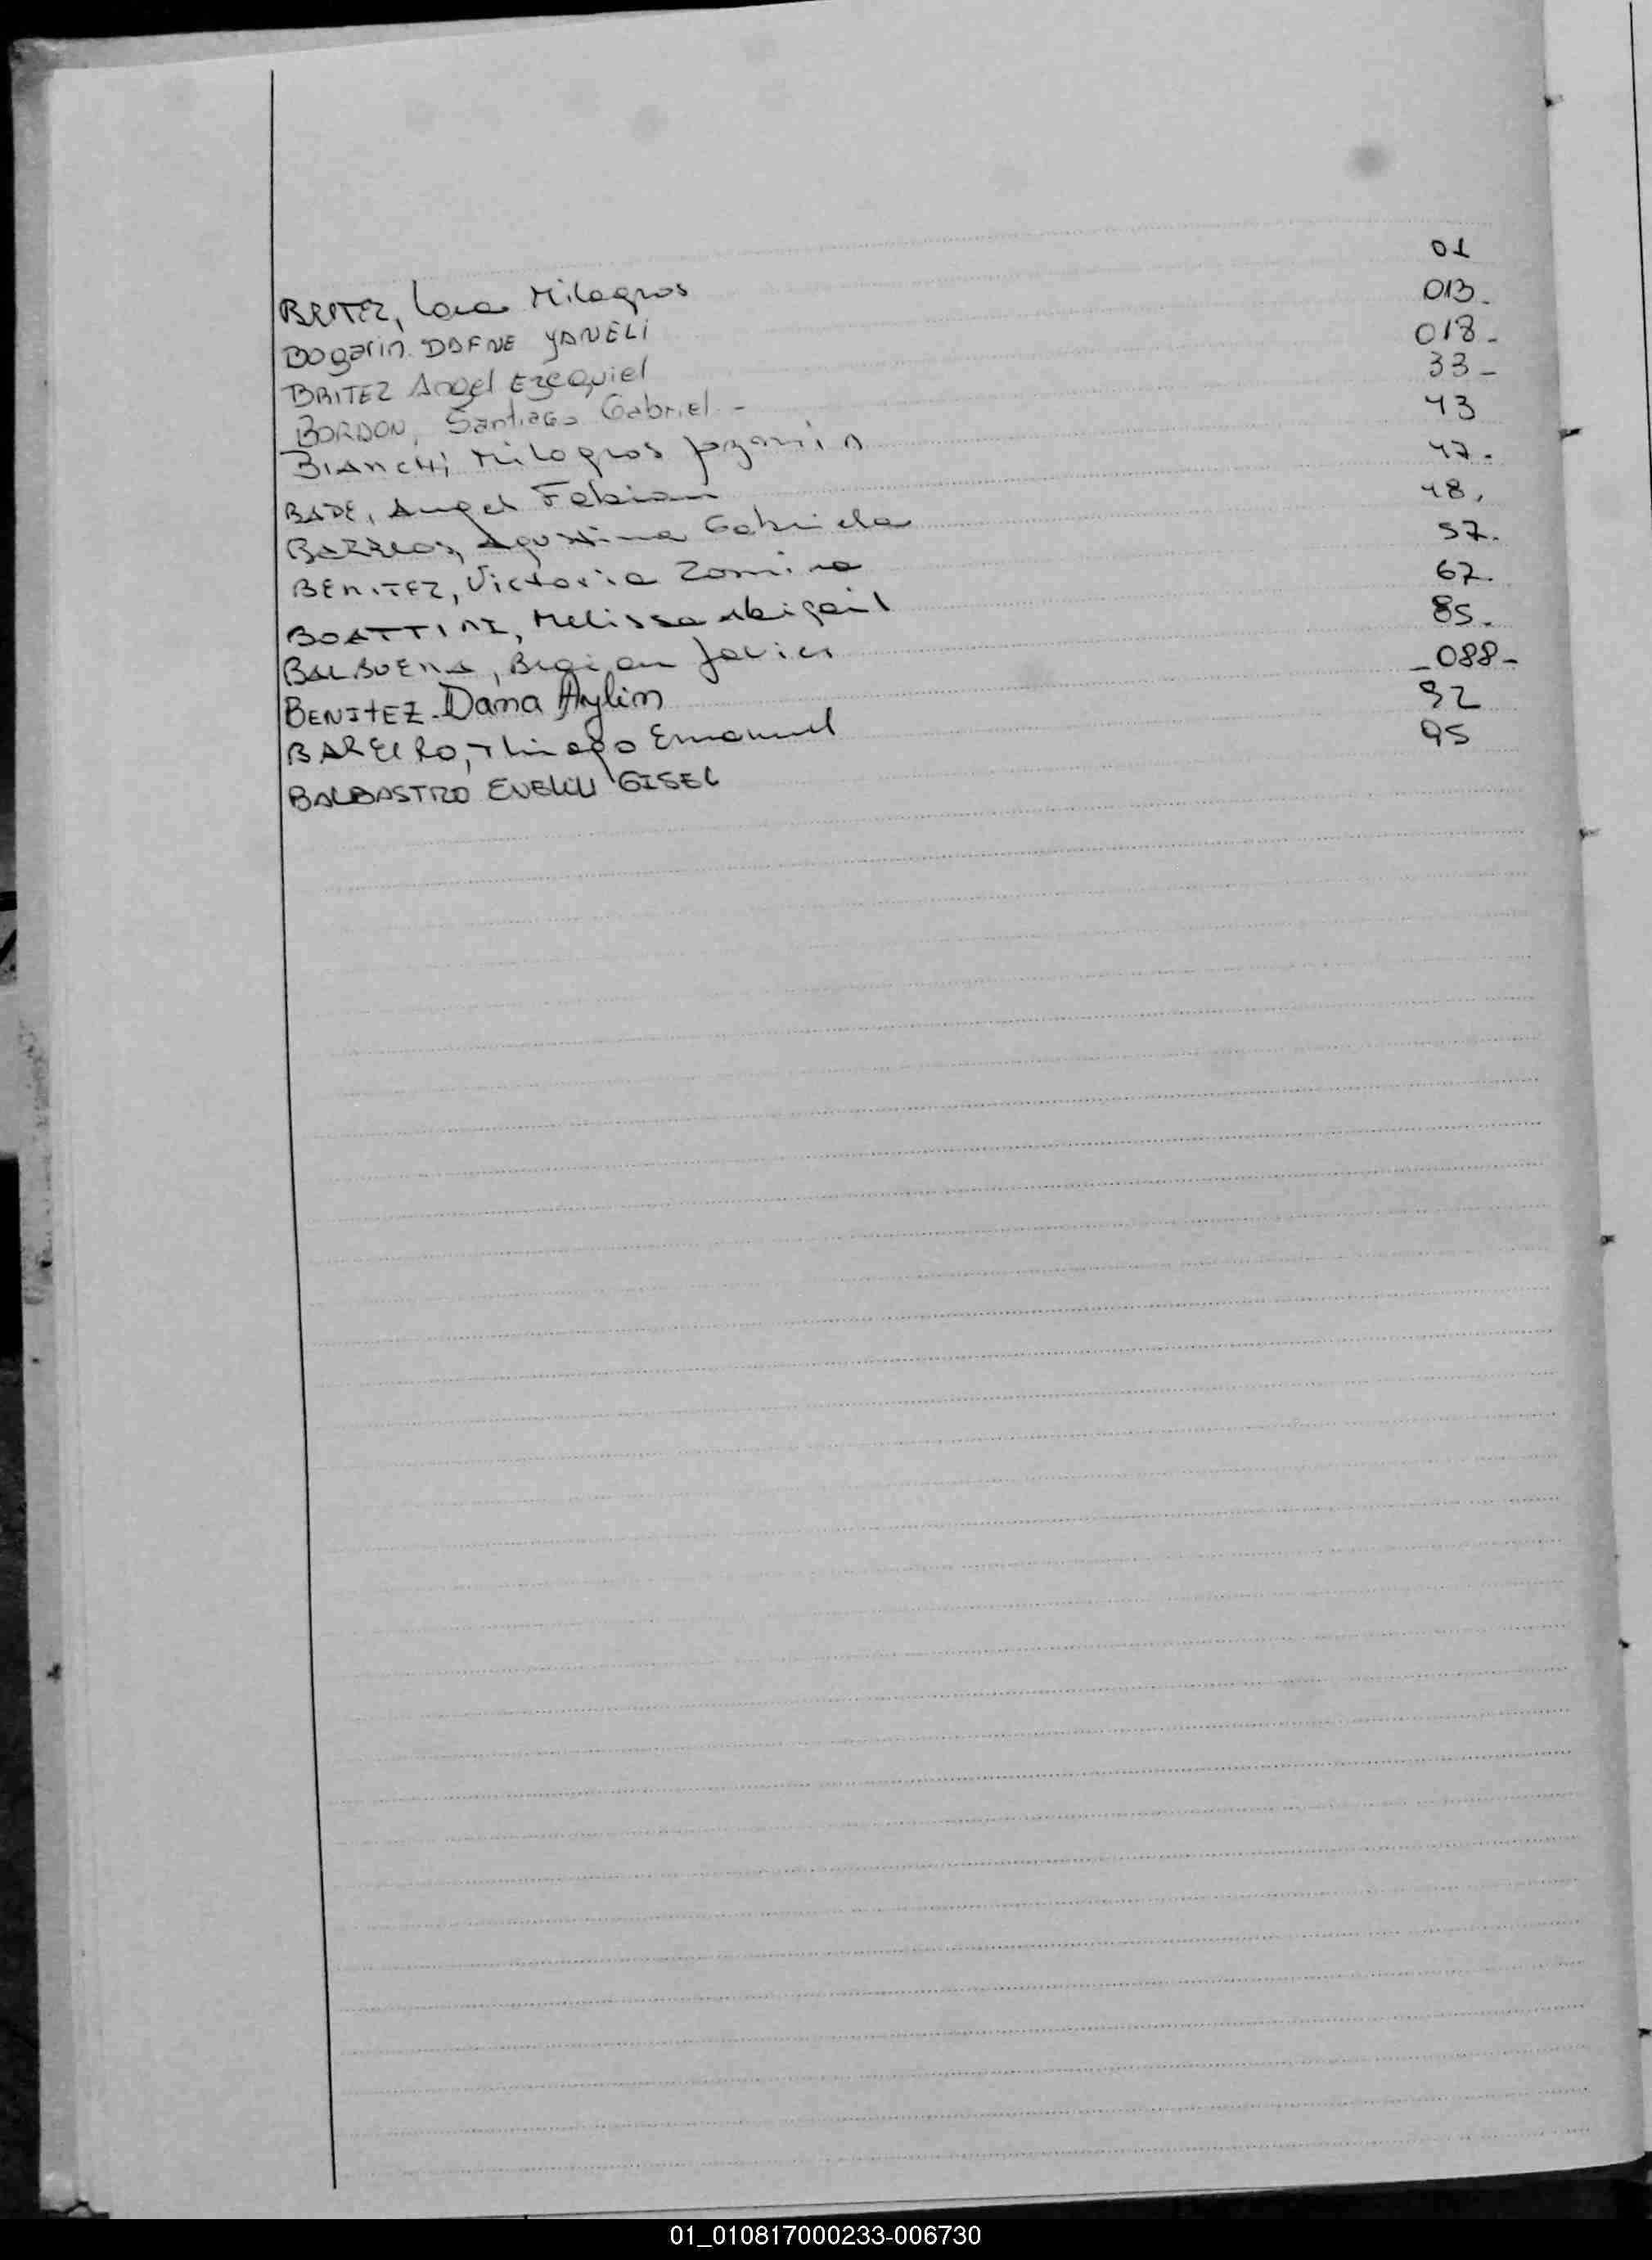 BRITEZ, Lara Milagros 01
Bogarin DAFNE YANELI 013.
BRITEZ Angel Ezequiel 018-
BORDON, Santiago Gabriel - 33-
BIANCHI Milagros Jazmin 43
BADE, Angel Fabian 47.
BARRIOS, Agustina Gabriela 48.
BENITEZ, Victoria Zamira 57.
BOATTINI, Melissa Abigail 67.
BALBUENA, Braian Javier 85.
BENITEZ - Dana Aylin -088-
BAREIRO, Thiago Emanuel 92
BALBASTRO EVELYN GISEL 95
01_010817000233-006730